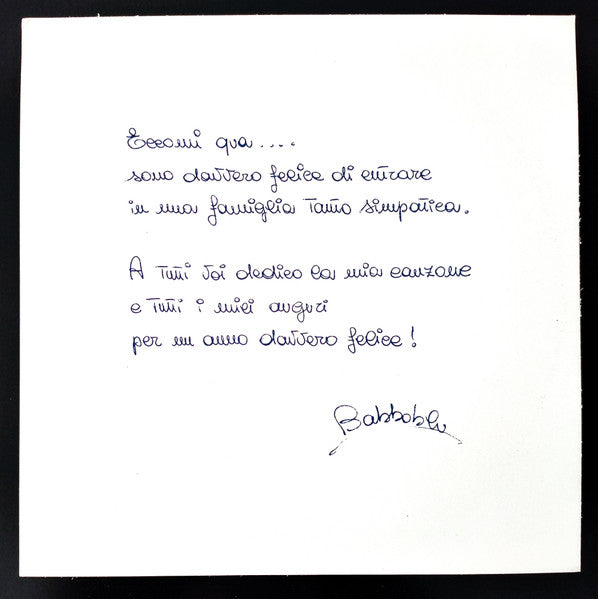 Eccomi qua....
sono davvero felice di entrare
in una famiglia tanto simpatica.
A tutti voi dedico la mia canzone
e tutti i miei auguri
per un anno davvero felice!
Babboblu